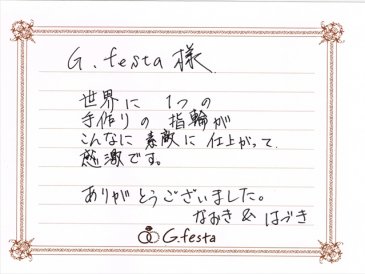 G.festa 様
世界に 1つの
手作りの 指輪が
こんなに 素敵に 仕上がって
感激です。
ありがとうございました。
なおき & はづき
G.festa